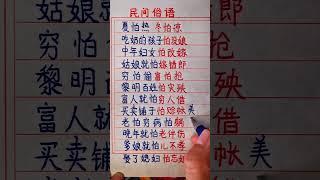 民间俗语
夏怕热 冬怕凉
吃奶的孩子怕没娘
中年妇女怕改嫁
姑娘就怕嫁错郎
穷怕偷富怕抢
黎明百姓怕灾殃
富人就怕穷人借
买卖铺子怕赊帐
老怕穷 病怕躺
晚年就怕老伴伤
爹娘就怕儿不孝
娶了媳妇怕忘
穷怕
黎明
富人
买卖
殃
借
帐
美